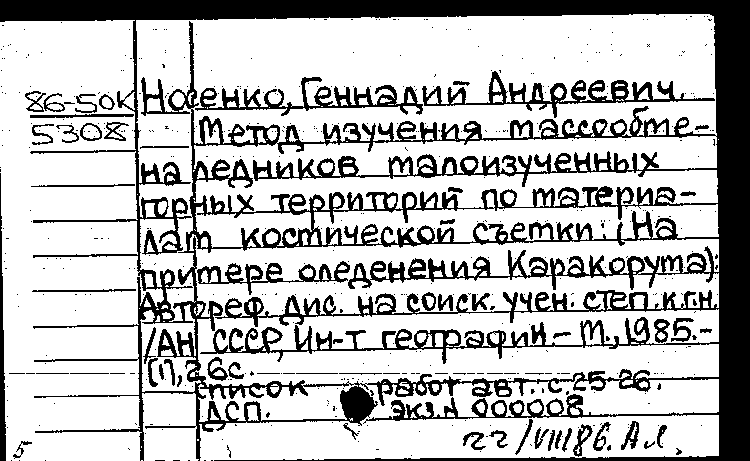 86-50К
5308
Носенко, Геннадий Андреевич.
Метод изучения массообме-
на ледников малоизученных
горных территорий по материа-
лам космической съемки: (На
примере оледенения Каракорума):
Автореф. дис. на соиск. учен. степ. к.г.н.
/АН СССР, Ин-т географии. - М., 1985.-
[1], 26 с.
Список работ авт.: с. 25-26.
ДСП. Экз. N 000008.
22/VIII86. А.Л.
5